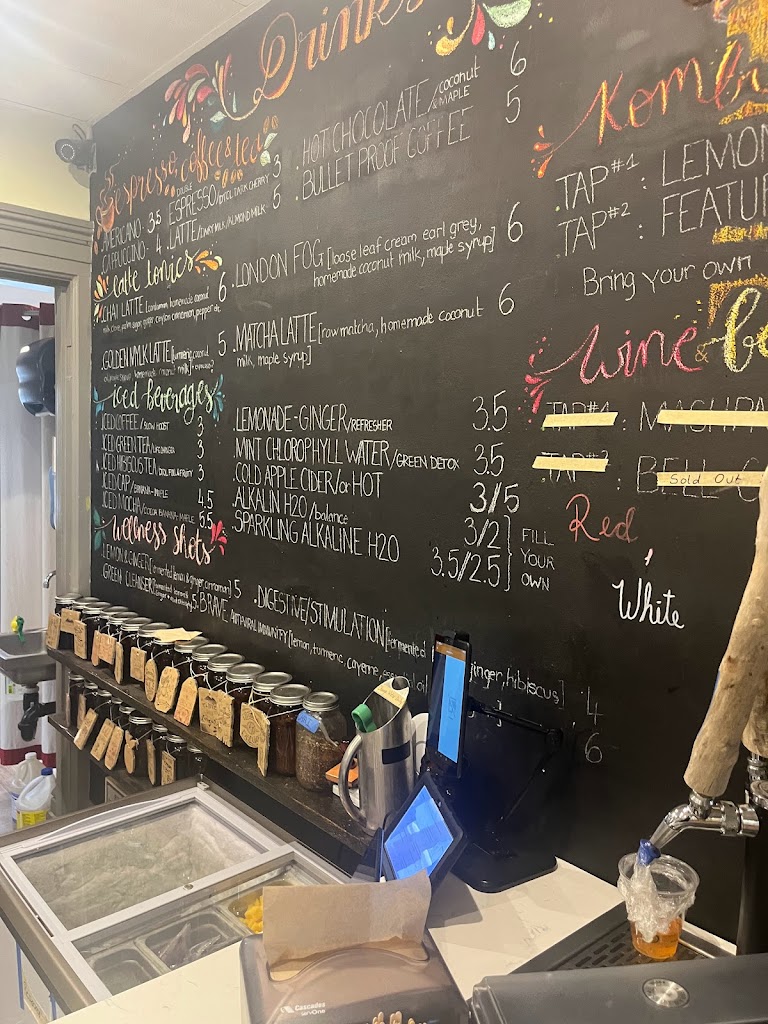 Drinks
Espresso, coffee & tea
AMERICANO · 3.5
DOUBLE ESPRESSO/BTCL DARK CHERRY 3
CAPPUCCINO · 4
LATTE/DAIRY MILK/ALMOND MILK · 5
latte tonics
CHAI LATTE [cardamom, homemade coconut 6
GOLDEN MYLK LATTE [turmeric, coconut 5
iced beverages
ICED COFFEE/SLOW ROAST 3
ICED GREEN TEA 3
ICED HIBISCUS TEA/COOL FIN & FRUITY 3
ICED CAP/BANANA-MAPLE 4.5
ICED MOCHA/COCOA BANANA-MAPLE 5.5
wellness shots
LEMON & GINGER [fermented lemon & ginger, cinnamon] 5
GREEN CLEANSER 5
.BRAVE ANTIVIRAL IMMUNITY [lemon, turmeric, cayenne,
.HOT CHOCOLATE/coconut & MAPLE 6
.BULLET PROOF COFFEE 5
.LONDON FOG [loose leaf cream earl grey, 6
homemade coconut milk, maple syrup]
.MATCHA LATTE [raw matcha, homemade coconut 6
milk, maple syrup]
.LEMONADE-GINGER/REFRESHER 3.5
MINT CHLOROPHYLL WATER/GREEN DETOX 3.5
.COLD APPLE CIDER/or HOT 3/5
.ALKALIN H2O/balance 3/2
.SPARKLING ALKALINE H2O 3.5/2.5
FILL
YOUR
OWN
.DIGESTIVE/STIMULATION [fermented
ginger, hibiscus] 4
6
Kombu
.TAP #1 : LEMON
TAP #2 : FEATU
Bring your own
wine & be
TAP #1 :
TAP #2 : BELL
Sold Out
Red
,
White
Cascades
servOne